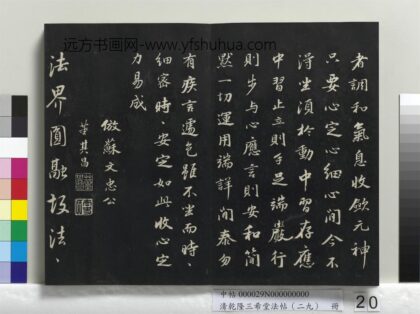 远方书画网-www.yfshuhua.com
者調和氣息收斂元神
只要心定心細心閒今不
得坐須於動中習存應
中習止立則手足端嚴行
則步與心應言則安和簡
默一切運用端詳閒泰勿
有疾言遽色雖不坐而時、
細密時、安定如此收心定
力易成
倣蘇文忠公
董其昌
法界圓融故法、
中帖 000029N000000000
清乾隆三希堂法帖(二九) 冊
20